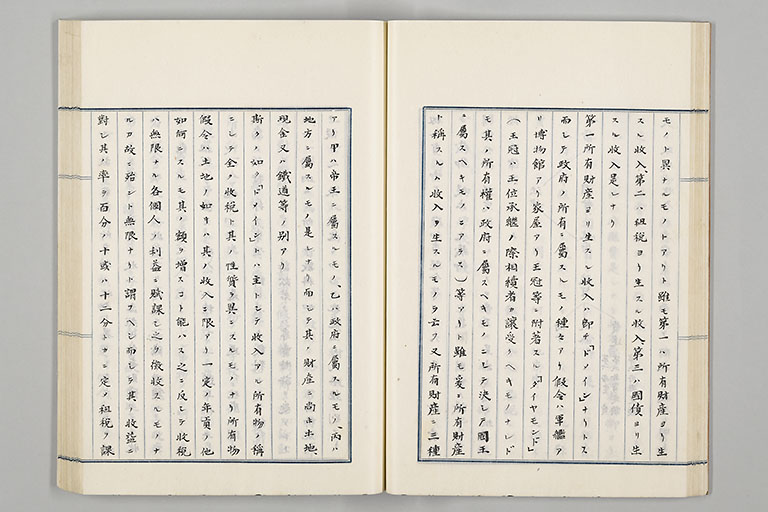 モノト異ナルモノトアリト雖モ第一ハ所有財産ヨリ生
スル收入、第二ハ租税ヨリ生スル收入、第三ハ國債ヨリ生
スル收入是レナリ
第一所有財産ヨリ生スル收入ハ即チ「ドメイン」ナリトス
而シテ政府ノ所有ニ屬スルモノ種々アリ假令ハ軍艦ア
リ博物館アリ家屋アリ王冠等ニ附著スル「ダイヤモンド」
(王冠ハ王位承継ノ際相續者カ讓受クヘキモノナレド
モ其ノ所有權ハ政府ニ屬スヘキモノニシテ決シテ國王
ニ屬スヘキモノニアラス)等アリト雖モ爰ニ所有財産
ト稱スルハ收入ヲ生スルモノヲ云フ又所有財産ニ三種
アリ甲ハ帝王ニ屬スルモノ、乙ハ政府ニ屬スルモノ、丙ハ
地方ニ屬スルモノ是レナリ而シテ其ノ財産ニ尚ホ土地、
現金又ハ鐵道等ノ別アリ
斯クノ如ク「ドメイン」ハ主トシテ收入アル所有物ノ稱
ニシテ全ク收税ト其ノ性質ヲ異ニスルモノナリ所有物
假令ハ土地ノ如キハ其ノ收入ニ限アリ一定ノ年貢ノ他
如何ニスルモ其ノ額ヲ増スコト能ハス之ニ反シテ收税
ハ無限ナル各個人ノ利益ニ賦課シ之ヲ徴收スルモノナ
ルカ故ニ殆ント無限ナリト謂フヘシ而シテ其ノ收益ニ
對シ其ノ率ヲ百分ノ十或ハ十二分トナシ定ノ租税ヲ課